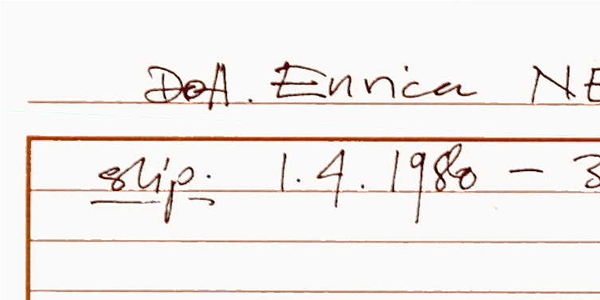 Dott. Enrica NE
stip. 1.4.1980 - 3